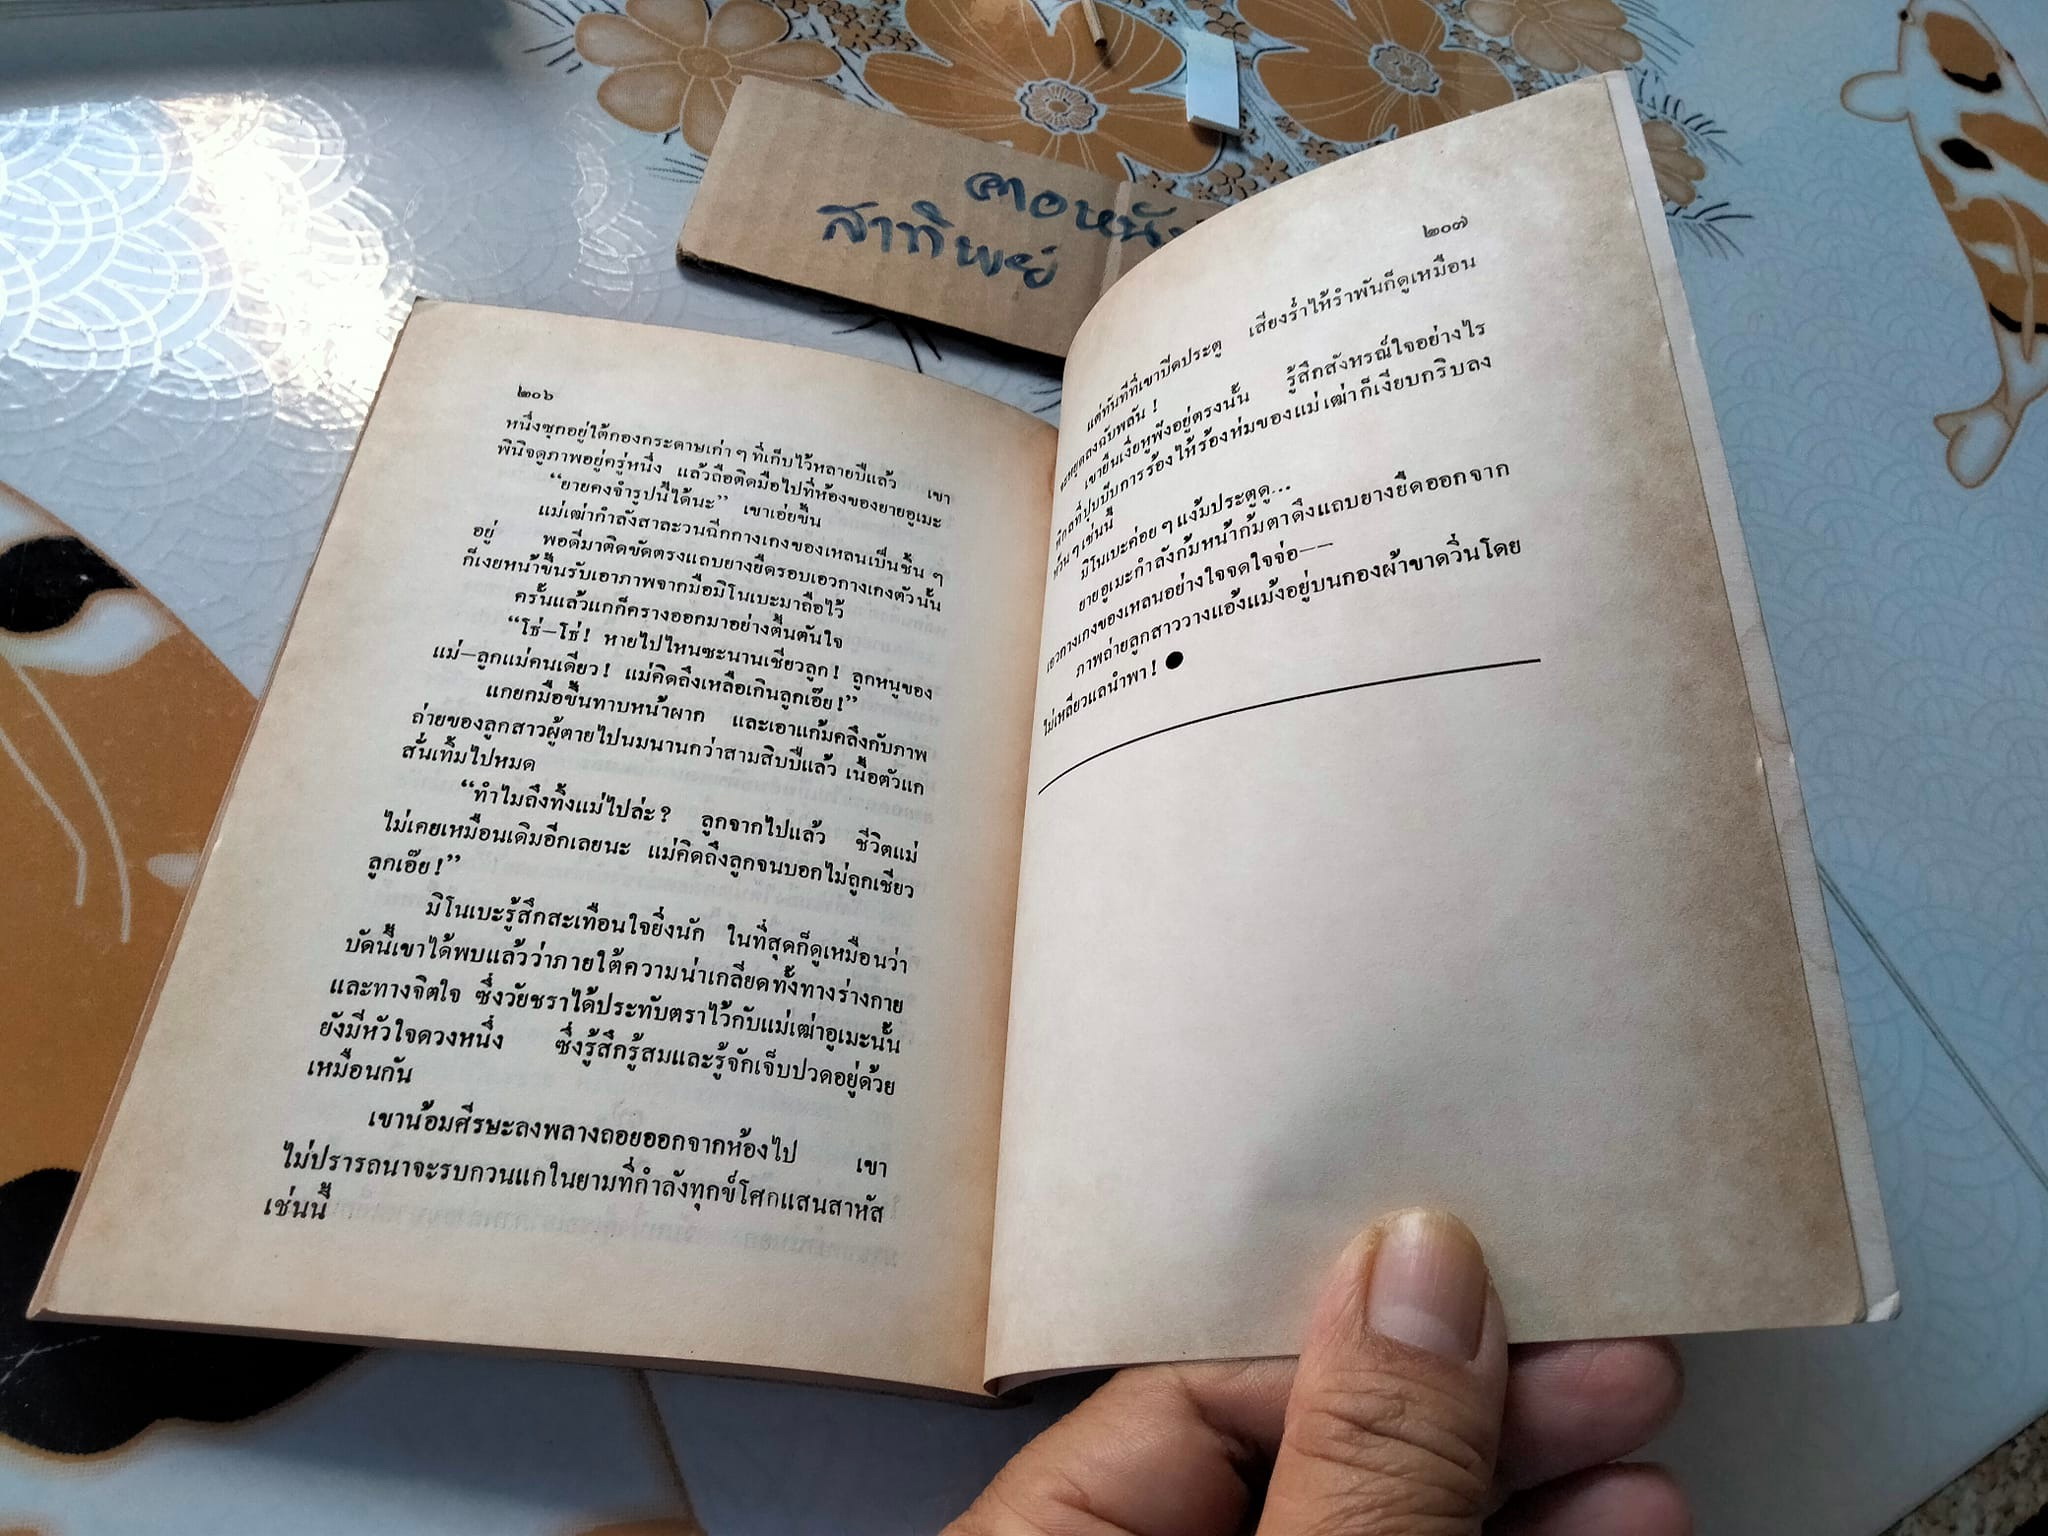 คอหนัง
สาทิพย์
๒๐๖
หนึ่งซุกอยู่ใต้กองกระดาษเก่า ๆ ที่เก็บไว้หลายปีแล้ว เขา
พินิจดูภาพอยู่ครู่หนึ่ง แล้วถือติดมือไปที่ห้องของยายอูเมะ
“ยายคงจำรูปนี้ได้นะ” เขาเอ่ยขึ้น
แม่เฒ่ากำลังสาละวนฉีกกางเกงของเหลนเป็นชิ้น ๆ
อยู่ พอดีมาติดขัดตรงแถบยางยืดรอบเอวกางเกงตัวนั้น
ก็เงยหน้าขึ้นรับเอาภาพจากมือมิโนเบะมาถือไว้
ครั้นแล้วแกก็ครางออกมาอย่างตื้นตันใจ
“โธ่—โธ่! หายไปไหนซะนานเชียวลูก! ลูกหนูของ
แม่—ลูกแม่คนเดียว! แม่คิดถึงเหลือเกินลูกเอ๊ย!”
แกยกมือขึ้นทาบหน้าผาก และเอาแก้มคลึงกับภาพ
ถ่ายของลูกสาวผู้ตายไปนมนานกว่าสามสิบปีแล้ว เนื้อตัวแก
สั่นเทิ้มไปหมด
“ทำไมถึงทิ้งแม่ไปล่ะ? ลูกจากไปแล้ว ชีวิตแม่
ไม่เคยเหมือนเดิมอีกเลยนะ แม่คิดถึงลูกจนบอกไม่ถูกเชียว
ลูกเอ๊ย!”
มิโนเบะรู้สึกสะเทือนใจยิ่งนัก ในที่สุดก็ดูเหมือนว่า
บัดนี้เขาได้พบแล้วว่าภายใต้ความน่าเกลียดทั้งทางร่างกาย
และทางจิตใจ ซึ่งวัยชราได้ประทับตราไว้กับแม่เฒ่าอูเมะนั้น
ยังมีหัวใจดวงหนึ่ง ซึ่งรู้สึกรู้สมและรู้จักเจ็บปวดอยู่ด้วย
เหมือนกัน
เขาน้อมศีรษะลงพลางถอยออกจากห้องไป เขา
ไม่ปรารถนาจะรบกวนแกในยามที่กำลังทุกข์โศกแสนสาหัส
เช่นนี้
๒๐๗
แต่ทันทีที่เขาปิดประตู เสียงร่ำไห้รำพันก็ดูเหมือน
จะหยุดลงฉับพลัน!
เขายืนเงี่ยหูฟังอยู่ตรงนั้น รู้สึกสังหรณ์ใจอย่างไร
พิกลที่ปุบปับการร้องไห้ร้องห่มของแม่เฒ่าก็เงียบกริบลง
ห้วน ๆ เช่นนี้
มิโนเบะค่อย ๆ แง้มประตูดู...
ยายอูเมะกำลังก้มหน้าก้มตาดึงแถบยางยืดออกจาก
เอวกางเกงของเหลนอย่างใจจดใจจ่อ——
ภาพถ่ายลูกสาววางแอ้งแม้งอยู่บนกองผ้าขาดวิ่นโดย
ไม่เหลียวแลนำพา! ●